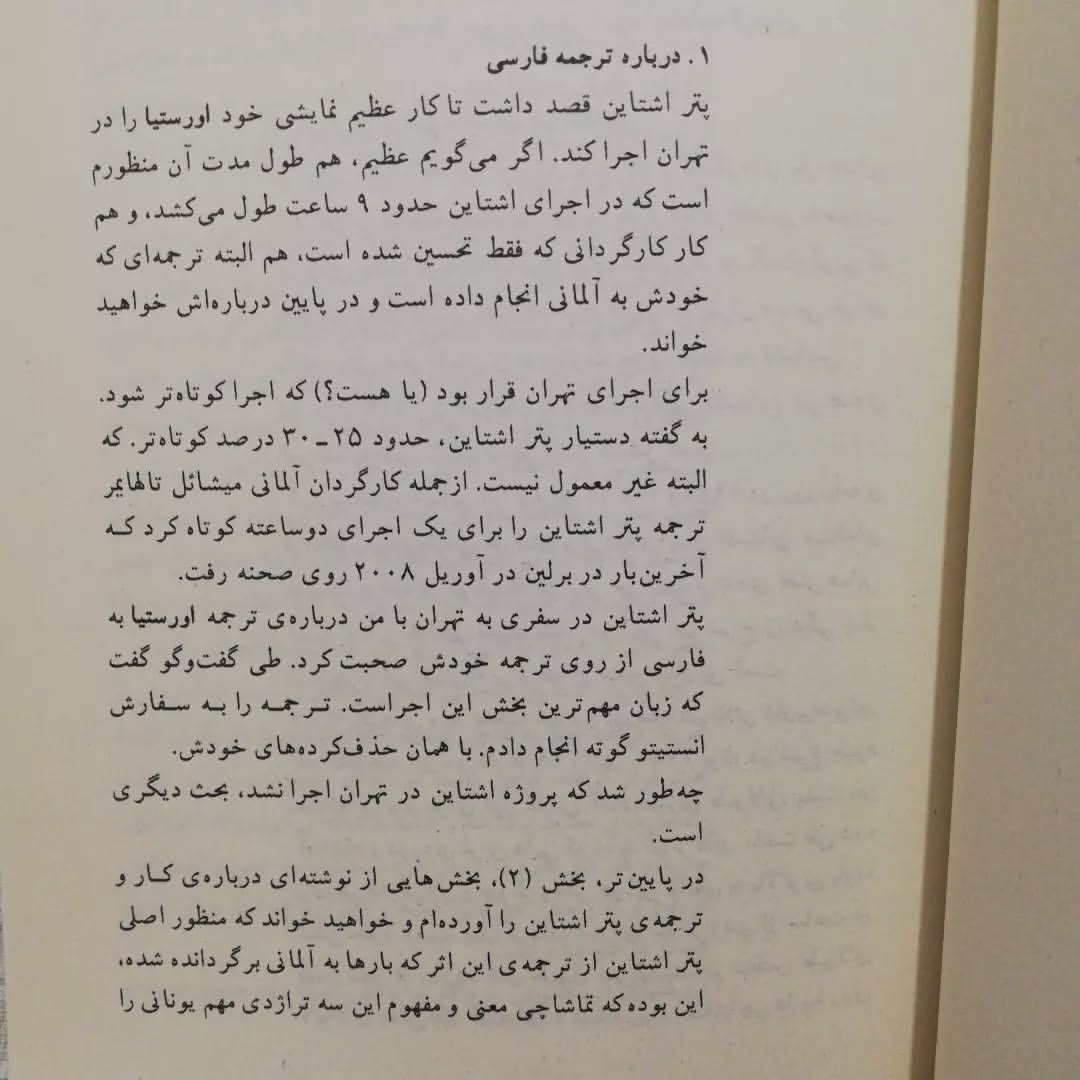 ۱. درباره ترجمه فارسی
پتر اشتاین قصد داشت تا کار عظیم نمایشی خود اورستیا را در
تهران اجرا کند. اگر می‌گویم عظیم، هم طول مدت آن منظورم
است که در اجرای اشتاین حدود ۹ ساعت طول می‌کشد، و هم
کار کارگردانی که فقط تحسین شده است، هم البته ترجمه‌ای که
خودش به آلمانی انجام داده است و در پایین درباره‌اش خواهید
خواند.
برای اجرای تهران قرار بود (یا هست؟) که اجرا کوتاه‌تر شود.
به گفته دستیار پتر اشتاین، حدود ۲۵ ـ ۳۰ درصد کوتاه‌تر. که
البته غیر معمول نیست. ازجمله کارگردان آلمانی میشائل تالهایمر
ترجمه پتر اشتاین را برای یک اجرای دوساعته کوتاه کرد که
آخرین‌بار در برلین در آوریل ۲۰۰۸ روی صحنه رفت.
پتر اشتاین در سفری به تهران با من درباره‌ی ترجمه اورستیا به
فارسی از روی ترجمه خودش صحبت کرد. طی گفت‌وگو گفت
که زبان مهم‌ترین بخش این اجراست. ترجمه را به سفارش
انستیتو گوته انجام دادم. با همان حذف‌کرده‌های خودش.
چه‌طور شد که پروژه اشتاین در تهران اجرا نشد، بحث دیگری
است.
در پایین‌تر، بخش (۲)، بخش‌هایی از نوشته‌ای درباره‌ی کار و
ترجمه‌ی پتر اشتاین را آورده‌ام و خواهید خواند که منظور اصلی
پتر اشتاین از ترجمه‌ی این اثر که بارها به آلمانی برگردانده شده،
این بوده که تماشاچی معنی و مفهوم این سه تراژدی مهم یونانی را